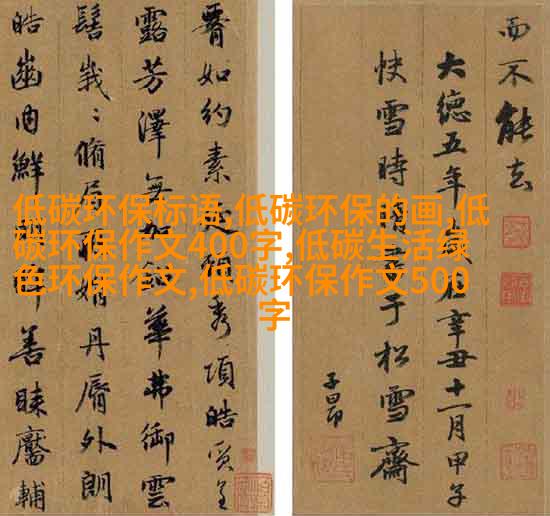 低碳环保标语,低碳环保的画,低
碳环保作文400字,低碳生活绿
色环保作文,低碳环保作文500
字
腰如約素延頸秀項皓質呈
露芳澤無加華弗御雲
髻峩〻脩眉娟丹脣外朗
皓齒内鮮善睞靨輔
而不能去
大德五年歲在辛丑十一月甲子
快雪時晴書于松雪齋
子昂